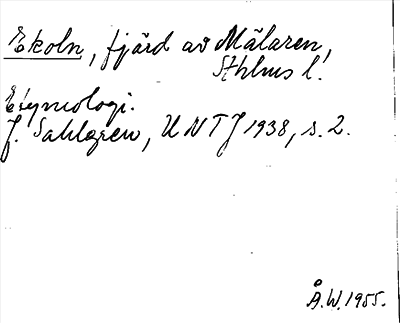 Ekoln, fjärd av Mälaren,
Sthlms l.
Etymologi.
J. Sahlgren, UNTJ 1938, s. 2.
Å.W. 1955.